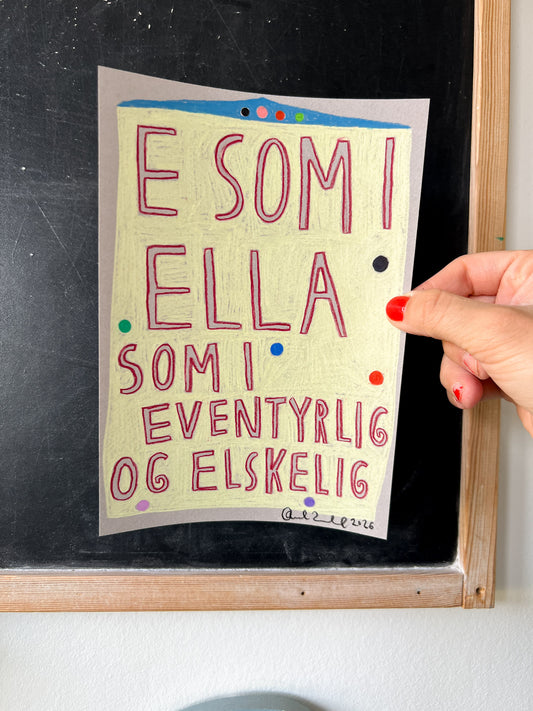 E SOM I
ELLA
SOM I
EVENTYRLIG
OG ELSKELIG
2026